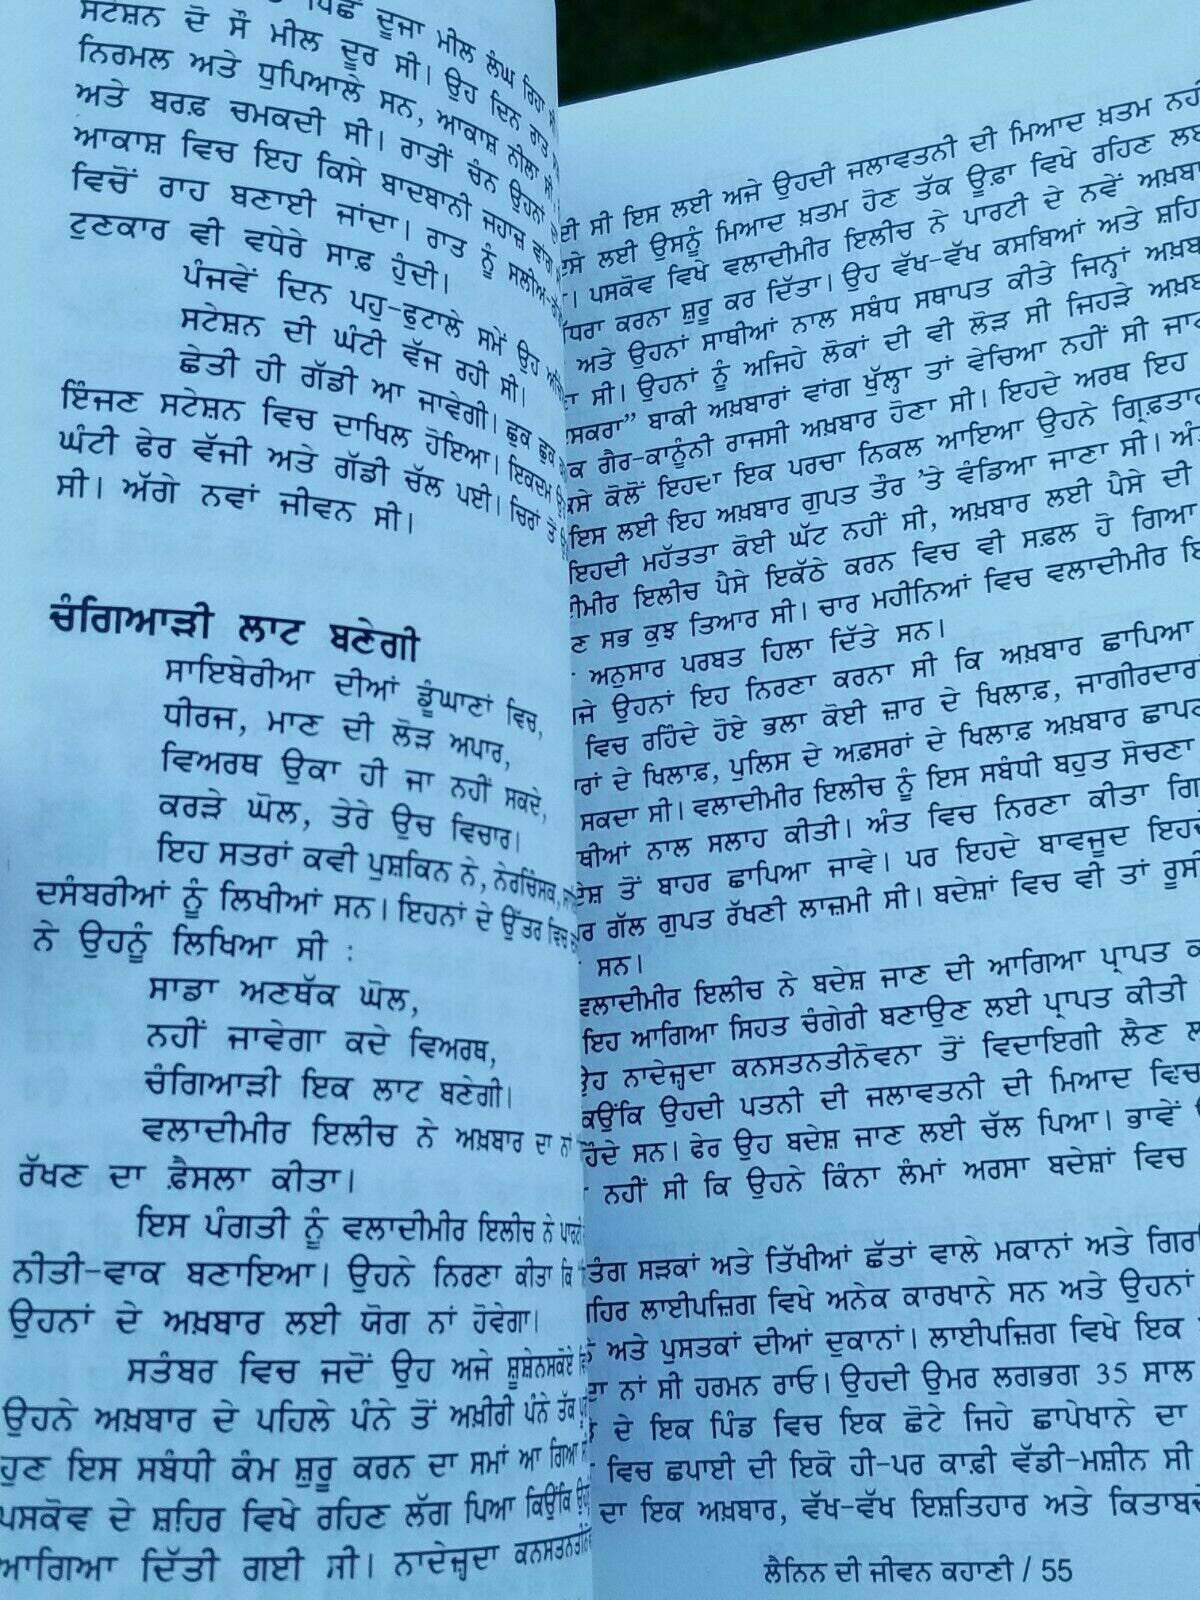 ਪਿੱਛੇ ਦੂਜਾ ਮੀਲ ਲੰਘ ਰਿਹਾ
ਸਟੇਸ਼ਨ ਦੋ ਸੌ ਮੀਲ ਦੂਰ ਸੀ। ਉਹ ਦਿਨ ਰਾਤ
ਨਿਰਮਲ ਅਤੇ ਧੁਪਿਆਲੇ ਸਨ, ਆਕਾਸ਼ ਨੀਲਾ ਸੀ
ਅਤੇ ਬਰਫ਼ ਚਮਕਦੀ ਸੀ। ਰਾਤੀਂ ਚੰਨ ਉਹਨਾਂ
ਆਕਾਸ਼ ਵਿਚ ਇਹ ਕਿਸੇ ਬਾਦਬਾਨੀ ਜਹਾਜ਼ ਵਾਂਗ
ਵਿਚੋਂ ਰਾਹ ਬਣਾਈ ਜਾਂਦਾ। ਰਾਤ ਨੂੰ
ਟੁਣਕਾਰ ਵੀ ਵਧੇਰੇ ਸਾਫ਼ ਹੁੰਦੀ।
ਪੰਜਵੇਂ ਦਿਨ ਪਹੁ-ਫੁਟਾਲੇ ਸਮੇਂ ਉਹ
ਸਟੇਸ਼ਨ ਦੀ ਘੰਟੀ ਵੱਜ ਰਹੀ ਸੀ।
ਛੇਤੀ ਹੀ ਗੱਡੀ ਆ ਜਾਵੇਗੀ। ਛੁਕ ਛੁਕ
ਇੰਜਣ ਸਟੇਸ਼ਨ ਵਿਚ ਦਾਖਿਲ ਹੋਇਆ। ਇਕਦਮ
ਘੰਟੀ ਫੇਰ ਵੱਜੀ ਅਤੇ ਗੱਡੀ ਚੱਲ ਪਈ। ਚਿਰਾਂ ਤੋਂ
ਸੀ। ਅੱਗੇ ਨਵਾਂ ਜੀਵਨ ਸੀ।
ਚੰਗਿਆੜੀ ਲਾਟ ਬਣੇਗੀ
ਸਾਇਬੇਰੀਆ ਦੀਆਂ ਡੂੰਘਾਣਾਂ ਵਿਚ,
ਧੀਰਜ, ਮਾਣ ਦੀ ਲੋੜ ਅਪਾਰ,
ਵਿਅਰਥ ਉਕਾ ਹੀ ਜਾ ਨਹੀਂ ਸਕਦੇ,
ਕਰੜੇ ਘੋਲ, ਤੇਰੇ ਉਚ ਵਿਚਾਰ।
ਇਹ ਸਤਰਾਂ ਕਵੀ ਪੁਸ਼ਕਿਨ ਨੇ, ਨੇਰਚਿੰਸਕ,
ਦਸੰਬਰੀਆਂ ਨੂੰ ਲਿਖੀਆਂ ਸਨ। ਇਹਨਾਂ ਦੇ ਉੱਤਰ ਵਿਚ
ਨੇ ਉਹਨੂੰ ਲਿਖਿਆ ਸੀ :
ਸਾਡਾ ਅਣਥੱਕ ਘੋਲ,
ਨਹੀਂ ਜਾਵੇਗਾ ਕਦੇ ਵਿਅਰਥ,
ਚੰਗਿਆੜੀ ਇਕ ਲਾਟ ਬਣੇਗੀ।
ਵਲਾਦੀਮੀਰ ਇਲੀਚ ਨੇ ਅਖ਼ਬਾਰ ਦਾ ਨਾਂ
ਰੱਖਣ ਦਾ ਫ਼ੈਸਲਾ ਕੀਤਾ।
ਇਸ ਪੰਗਤੀ ਨੂੰ ਵਲਾਦੀਮੀਰ ਇਲੀਚ ਨੇ
ਨੀਤੀ-ਵਾਕ ਬਣਾਇਆ। ਉਹਨੇ ਨਿਰਣਾ ਕੀਤਾ ਕਿ
ਉਹਨਾਂ ਦੇ ਅਖ਼ਬਾਰ ਲਈ ਯੋਗ ਨਾਂ ਹੋਵੇਗਾ।
ਸਤੰਬਰ ਵਿਚ ਜਦੋਂ ਉਹ ਅਜੇ ਸ਼ੂਸ਼ੇਨਸਕੋਏ
ਉਹਨੇ ਅਖ਼ਬਾਰ ਦੇ ਪਹਿਲੇ ਪੰਨੇ ਤੋਂ ਅਖ਼ੀਰੀ ਪੰਨੇ ਤੱਕ
ਹੁਣ ਇਸ ਸਬੰਧੀ ਕੰਮ ਸ਼ੁਰੂ ਕਰਨ ਦਾ ਸਮਾਂ ਆ ਗਿਆ
ਪਸਕੋਵ ਦੇ ਸ਼ਹਿਰ ਵਿਖੇ ਰਹਿਣ ਲੱਗ ਪਿਆ ਕਿਉਂਕਿ
ਆਗਿਆ ਦਿੱਤੀ ਗਈ ਸੀ। ਨਾਦੇਜ਼੍ਹਦਾ
ਸੀ ਇਸ ਲਈ ਅਜੇ ਉਹਦੀ ਜਲਾਵਤਨੀ ਦੀ ਮਿਆਦ ਖ਼ਤਮ
ਲਈ ਉਸਨੂੰ ਮਿਆਦ ਖ਼ਤਮ ਹੋਣ ਤੱਕ ਊਫ਼ਾ ਵਿਖੇ ਰਹਿਣ
ਪਸਕੋਵ ਵਿਖੇ ਵਲਾਦੀਮੀਰ ਇਲੀਚ ਨੇ ਪਾਰਟੀ ਦੇ ਨਵੇਂ
ਕਰਨਾ ਸ਼ੁਰੂ ਕਰ ਦਿੱਤਾ। ਉਹ ਵੱਖ-ਵੱਖ ਕਸਬਿਆਂ ਅਤੇ
ਅਤੇ ਉਹਨਾਂ ਸਾਥੀਆਂ ਨਾਲ ਸਬੰਧ ਸਥਾਪਤ ਕੀਤੇ ਜਿਨ੍ਹਾਂ
ਸੀ। ਉਹਨਾਂ ਨੂੰ ਅਜਿਹੇ ਲੋਕਾਂ ਦੀ ਵੀ ਲੋੜ ਸੀ ਜਿਹੜੇ
ਬਾਕੀ ਅਖ਼ਬਾਰਾਂ ਵਾਂਗ ਖੁੱਲ੍ਹਾ ਤਾਂ ਵੇਚਿਆ ਨਹੀਂ ਸੀ
ਗੈਰ-ਕਾਨੂੰਨੀ ਰਾਜਸੀ ਅਖ਼ਬਾਰ ਹੋਣਾ ਸੀ। ਇਹਦੇ ਅਰਥ ਇਹ
ਕੋਲੋਂ ਇਹਦਾ ਇਕ ਪਰਚਾ ਨਿਕਲ ਆਇਆ ਉਹਨੇ
ਇਸ ਲਈ ਇਹ ਅਖ਼ਬਾਰ ਗੁਪਤ ਤੌਰ 'ਤੇ ਵੰਡਿਆ ਜਾਣਾ ਸੀ।
ਇਹਦੀ ਮਹੱਤਤਾ ਕੋਈ ਘੱਟ ਨਹੀਂ ਸੀ, ਅਖ਼ਬਾਰ ਲਈ ਪੈਸੇ ਦੀ
ਇਲੀਚ ਪੈਸੇ ਇਕੱਠੇ ਕਰਨ ਵਿਚ ਵੀ ਸਫ਼ਲ ਹੋ ਗਿਆ
ਸਭ ਕੁਝ ਤਿਆਰ ਸੀ। ਚਾਰ ਮਹੀਨਿਆਂ ਵਿਚ ਵਲਾਦੀਮੀਰ
ਅਨੁਸਾਰ ਪਰਬਤ ਹਿਲਾ ਦਿੱਤੇ ਸਨ।
ਉਹਨਾਂ ਇਹ ਨਿਰਣਾ ਕਰਨਾ ਸੀ ਕਿ ਅਖ਼ਬਾਰ ਛਾਪਿਆ
ਵਿਚ ਰਹਿੰਦੇ ਹੋਏ ਭਲਾ ਕੋਈ ਜ਼ਾਰ ਦੇ ਖਿਲਾਫ਼, ਜਾਗੀਰਦਾਰਾਂ
ਦੇ ਖਿਲਾਫ਼, ਪੁਲਿਸ ਦੇ ਅਫ਼ਸਰਾਂ ਦੇ ਖਿਲਾਫ਼ ਅਖ਼ਬਾਰ
ਸਕਦਾ ਸੀ। ਵਲਾਦੀਮੀਰ ਇਲੀਚ ਨੂੰ ਇਸ ਸਬੰਧੀ ਬਹੁਤ ਸੋਚਣਾ
ਨਾਲ ਸਲਾਹ ਕੀਤੀ। ਅੰਤ ਵਿਚ ਨਿਰਣਾ ਕੀਤਾ
ਤੋਂ ਬਾਹਰ ਛਾਪਿਆ ਜਾਵੇ। ਪਰ ਇਹਦੇ ਬਾਵਜੂਦ
ਗੱਲ ਗੁਪਤ ਰੱਖਣੀ ਲਾਜ਼ਮੀ ਸੀ। ਬਦੇਸ਼ਾਂ ਵਿਚ ਵੀ ਤਾਂ ਰੂਸੀ
ਸਨ।
ਵਲਾਦੀਮੀਰ ਇਲੀਚ ਨੇ ਬਦੇਸ਼ ਜਾਣ ਦੀ ਆਗਿਆ ਪ੍ਰਾਪਤ
ਇਹ ਆਗਿਆ ਸਿਹਤ ਚੰਗੇਰੀ ਬਣਾਉਣ ਲਈ ਪ੍ਰਾਪਤ ਕੀਤੀ
ਉਹ ਨਾਦੇਜ਼੍ਹਦਾ ਕਨਸਤਨਤੀਨੋਵਨਾ ਤੋਂ ਵਿਦਾਇਗੀ ਲੈਣ
ਕਿਉਂਕਿ ਉਹਦੀ ਪਤਨੀ ਦੀ ਜਲਾਵਤਨੀ ਦੀ ਮਿਆਦ ਵਿਚ
ਰਹਿੰਦੇ ਸਨ। ਫੇਰ ਉਹ ਬਦੇਸ਼ ਜਾਣ ਲਈ ਚੱਲ ਪਿਆ। ਭਾਵੇਂ
ਨਹੀਂ ਸੀ ਕਿ ਉਹਨੇ ਕਿੰਨਾ ਲੰਮਾਂ ਅਰਸਾ ਬਦੇਸ਼ਾਂ ਵਿਚ
ਤੰਗ ਸੜਕਾਂ ਅਤੇ ਤਿੱਖੀਆਂ ਛੱਤਾਂ ਵਾਲੇ ਮਕਾਨਾਂ ਅਤੇ
ਲਾਈਪਜ਼ਿਗ ਵਿਖੇ ਅਨੇਕ ਕਾਰਖਾਨੇ ਸਨ ਅਤੇ ਉਹਨਾਂ
ਅਤੇ ਪੁਸਤਕਾਂ ਦੀਆਂ ਦੁਕਾਨਾਂ। ਲਾਈਪਜ਼ਿਗ ਵਿਖੇ ਇਕ
ਨਾਂ ਸੀ ਹਰਮਨ ਰਾਓ। ਉਹਦੀ ਉਮਰ ਲਗਭਗ 35 ਸਾਲ
ਦੇ ਇਕ ਪਿੰਡ ਵਿਚ ਇਕ ਛੋਟੇ ਜਿਹੇ ਛਾਪੇਖਾਨੇ ਦਾ
ਵਿਚ ਛਪਾਈ ਦੀ ਇਕੋ ਹੀ-ਪਰ ਕਾਫ਼ੀ ਵੱਡੀ-ਮਸ਼ੀਨ ਸੀ
ਦਾ ਇਕ ਅਖ਼ਬਾਰ, ਵੱਖ-ਵੱਖ ਇਸ਼ਤਿਹਾਰ ਅਤੇ
ਲੈਨਿਨ ਦੀ ਜੀਵਨ ਕਹਾਣੀ / 55